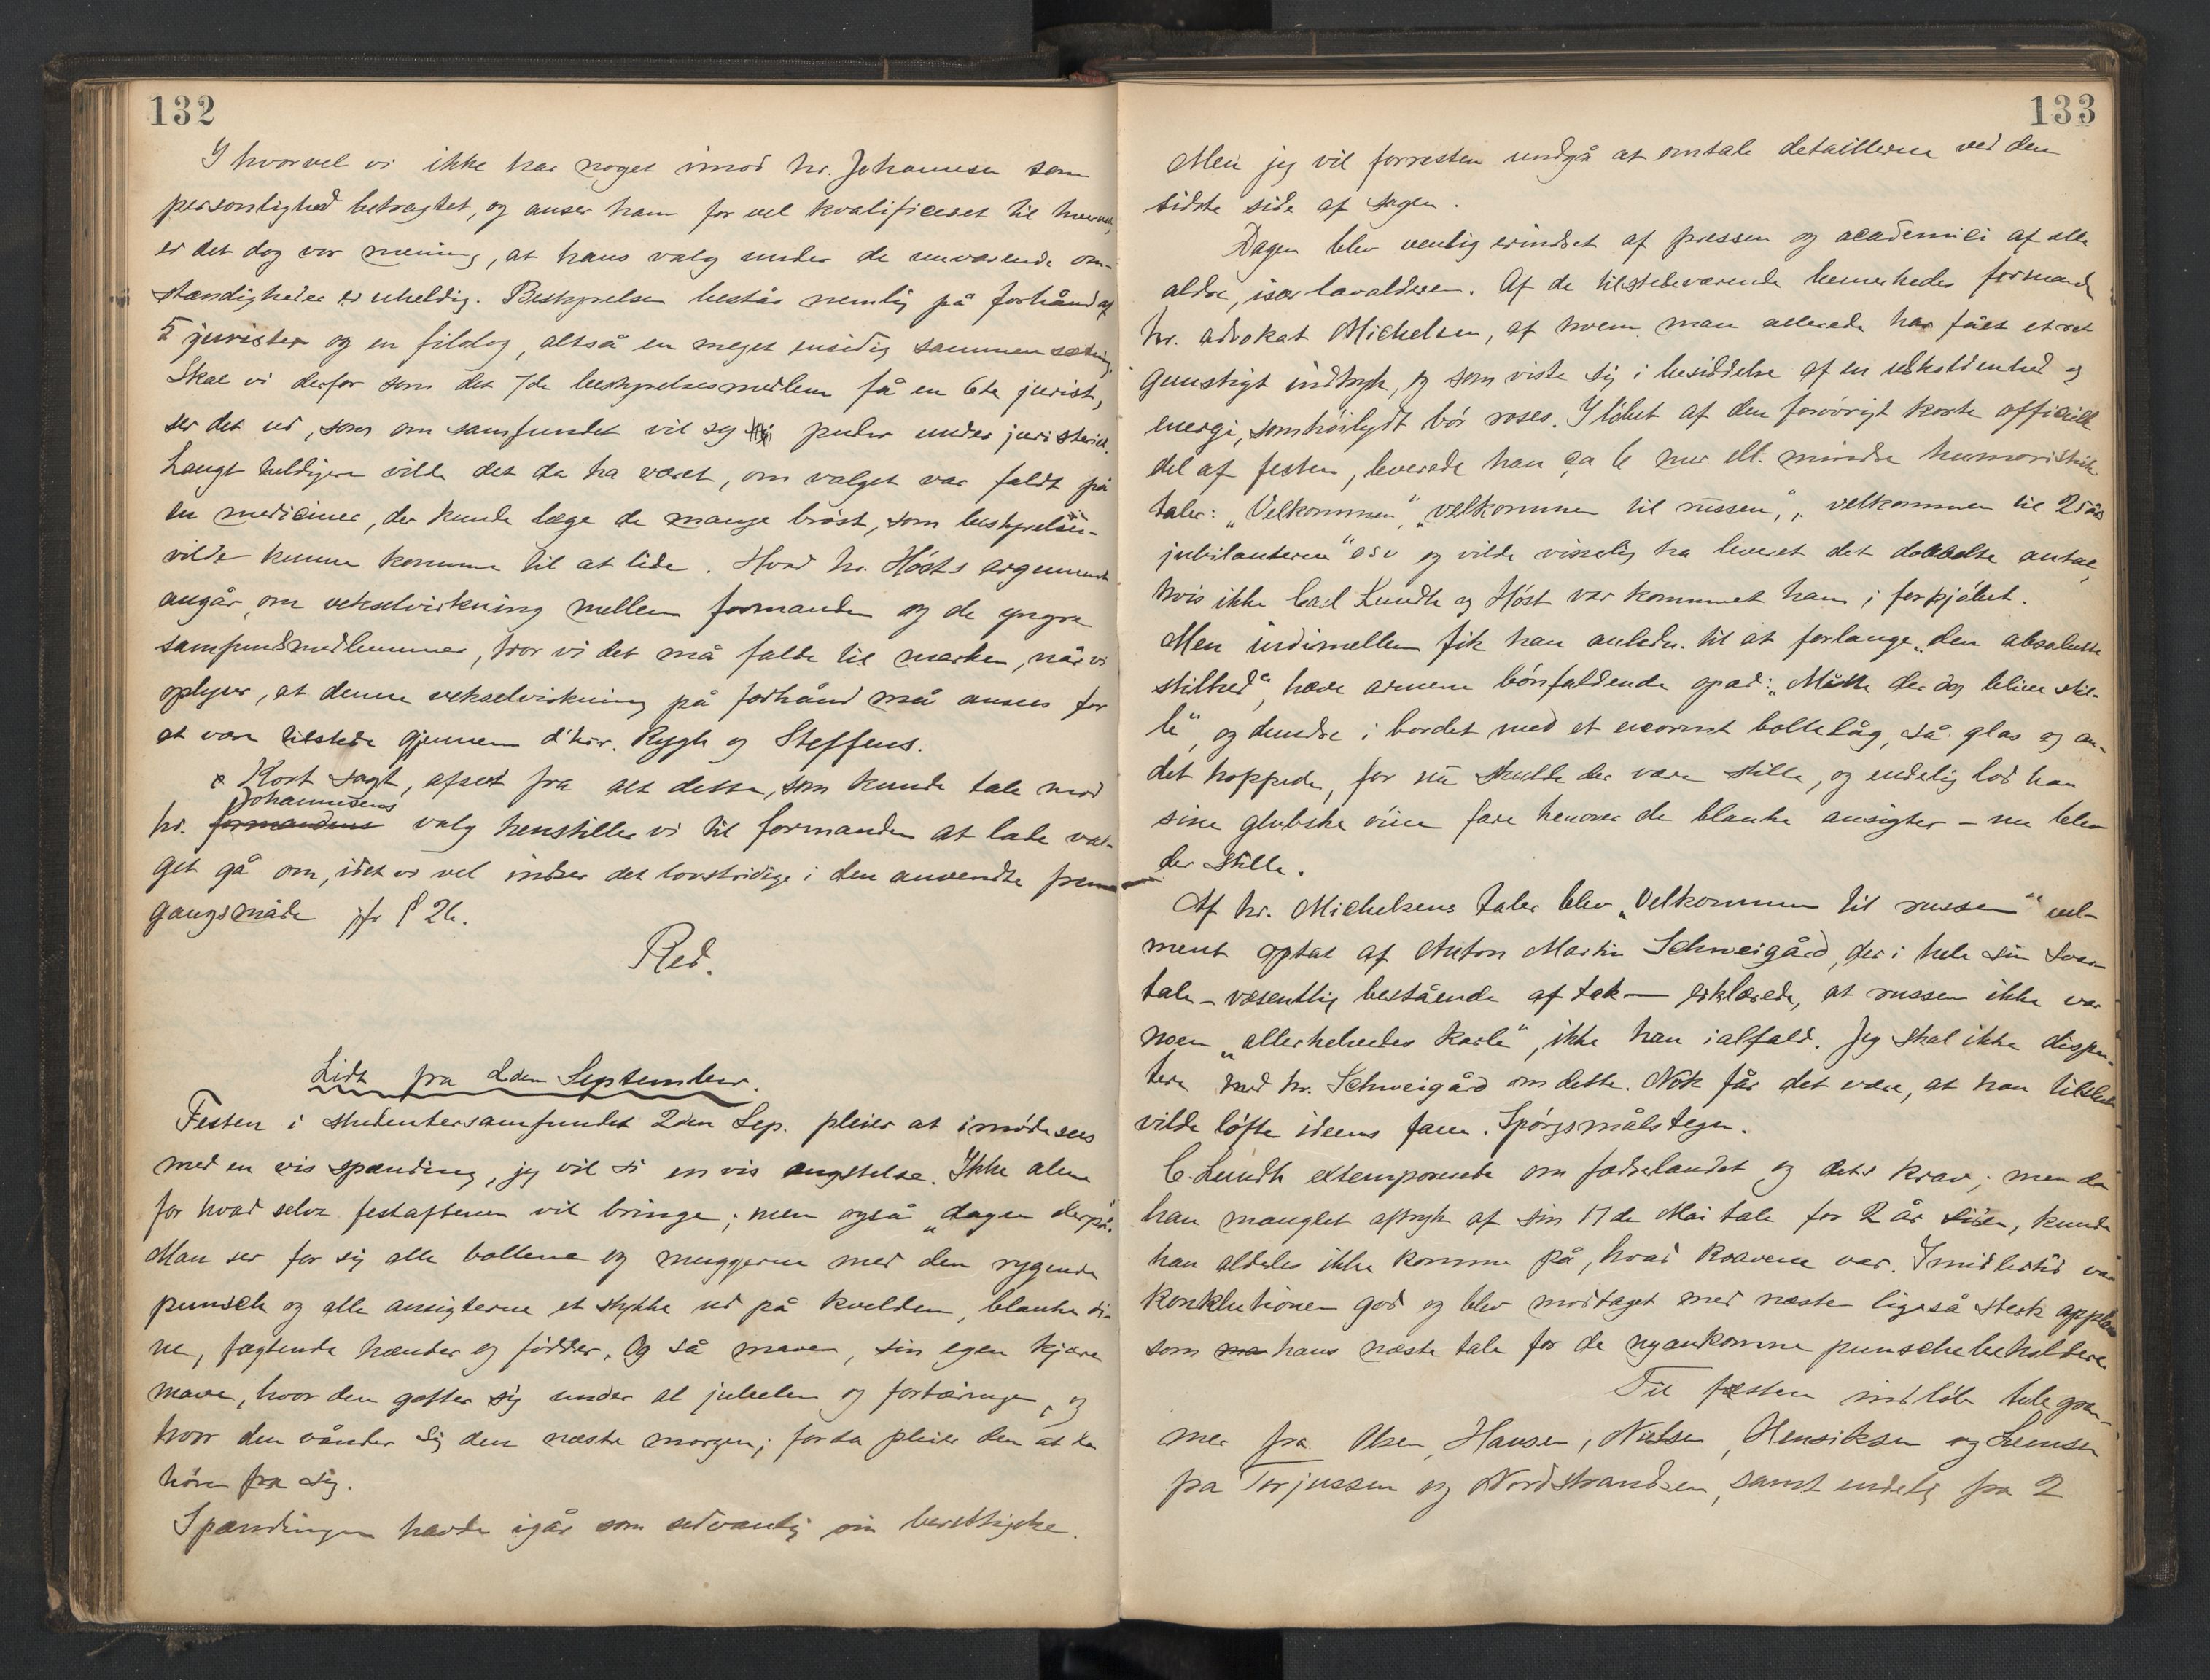 132
I hvorvel vi ikke har noget imod hr. Johannesen som
personlighed betragtet, og anser ham for vel kvalificeret til hvervet,
er det dog vor mening, at hans valg under de nuværende om-
stændigheder er uheldig. Bestyrelsen består nemlig på forhånd af
5 jurister og en filolog, altså en meget ensidig sammensætning.
Skal vi derfor som det 7de bestyrelsesmedlem få en 6te jurist,
ser det ud, som om samfundet vil sy puder under juristeriet.
Langt heldigere vilde det da ha været, om valget var faldt på
en mediciner, der kunde læge de mange brøst, som bestyrelsen
vilde kunne komme til at lide. Hvad hr. Høsts argument
angår, om vekselvirkning mellem formanden og de yngre
samfundsmedlemmer, tror vi det må falde til marken, når vi
oplyser, at denne vekselvirkning på forhånd må ansees for
at være tilstede gjennem d'hrr. Rygh og Steffens.
Kort sagt, afseet fra alt dette, som kunde tale mod
Johannesens
hr. formandens valg henstiller vi til formanden at lade val-
get gå om, idet vi vel indser det lovstridige i den anvendte frem-
gangsmåde jfr § 26.
Red.
Lidt fra 2den September.
Festen i studentersamfundet 2den Sep. pleier at imødesees
med en vis spænding, jeg vil si en vis ængstelse. Ikke alene
for hvad selve festaftenen vil bringe; men også „dagen derpå".
Man ser for sig alle bollerne og muggerne med den rygende
punsch og alle ansigterne et stykke ud på kvelden, blanke øi-
ne, fægtende hænder og fødder. Og så maven, sin egen kjære
mave, hvor den gotter sig under al jubelen og fortæringen, og
hvor den vånder sig den næste morgen; for da pleier den at la
høre fra sig.
Spændingen havde igår som sedvanlig sin berettigelse.
133
Men jeg vil forresten undgå at omtale detaillerne ved den
sidste side af sagen.
Dagen blev venlig erindret af pressen og academici af alle
aldre, især lavalderen. Af de tilstedeværende bemerkedes formanden
hr. advokat Michelsen, af hvem man allerede har fået et ret
gunstigt indtryk, og som viste sig i besiddelse af en udholdenhed og
energi, som høilydt bør roses. I løbet af den forøvrigt korte officielle
del af festen, leverede han ca 6 mer ell. mindre humoristiske
taler: „Velkommen", „velkommen til russen", „velkommen til 25 års
jubilanterne" osv og vilde visselig ha leveret det dobbelte antal,
hvis ikke Carl Lundh og Høst var kommet ham i forkjøbet.
Men indimellem fik han anledn. til at forlange „den absolutte
stilhed", hæve armene bønfaldende opad: „Måtte der dog blive stil-
le", og dundre i bordet med et enormt bollelåg, så glas og an-
det hoppede, for nu skulde der være stille, og endelig lod han
sine glubske øine fare henover de blanke ansigter – nu blev
der stille.
Af hr. Michelsens taler blev „Velkommen til russen" vel-
ment optat af Anton Martin Schweigård, der i hele sin svar-
tale – væsentlig bestående af tak – erklærede, at russen ikke var
noen „allerhelvedes karle", ikke han ialfald. Jeg skal ikke dispu-
tere med hr. Schweigård om dette. Nok får det være, at han tilslut
vilde løfte ideens fane. Spørgsmålstegn.
C. Lundh extemporerte om fædrelandet og dets krav; men da
han manglet aftryk af sin 17de Mai tale for 2 år siden, kunde
han aldeles ikke komme på, hvad kravene var. Imidlertid var
konklutionen god og blev modtaget med næsten ligeså sterk applaus
som hans næste tale for de nyankomne punschebeholdere.
Til festen indløb telegram-
mer fra Olsen, Hansen, Nielsen, Henriksen og Lensen
fra Torjussen og Nordstrandsen, samt endelig fra 2